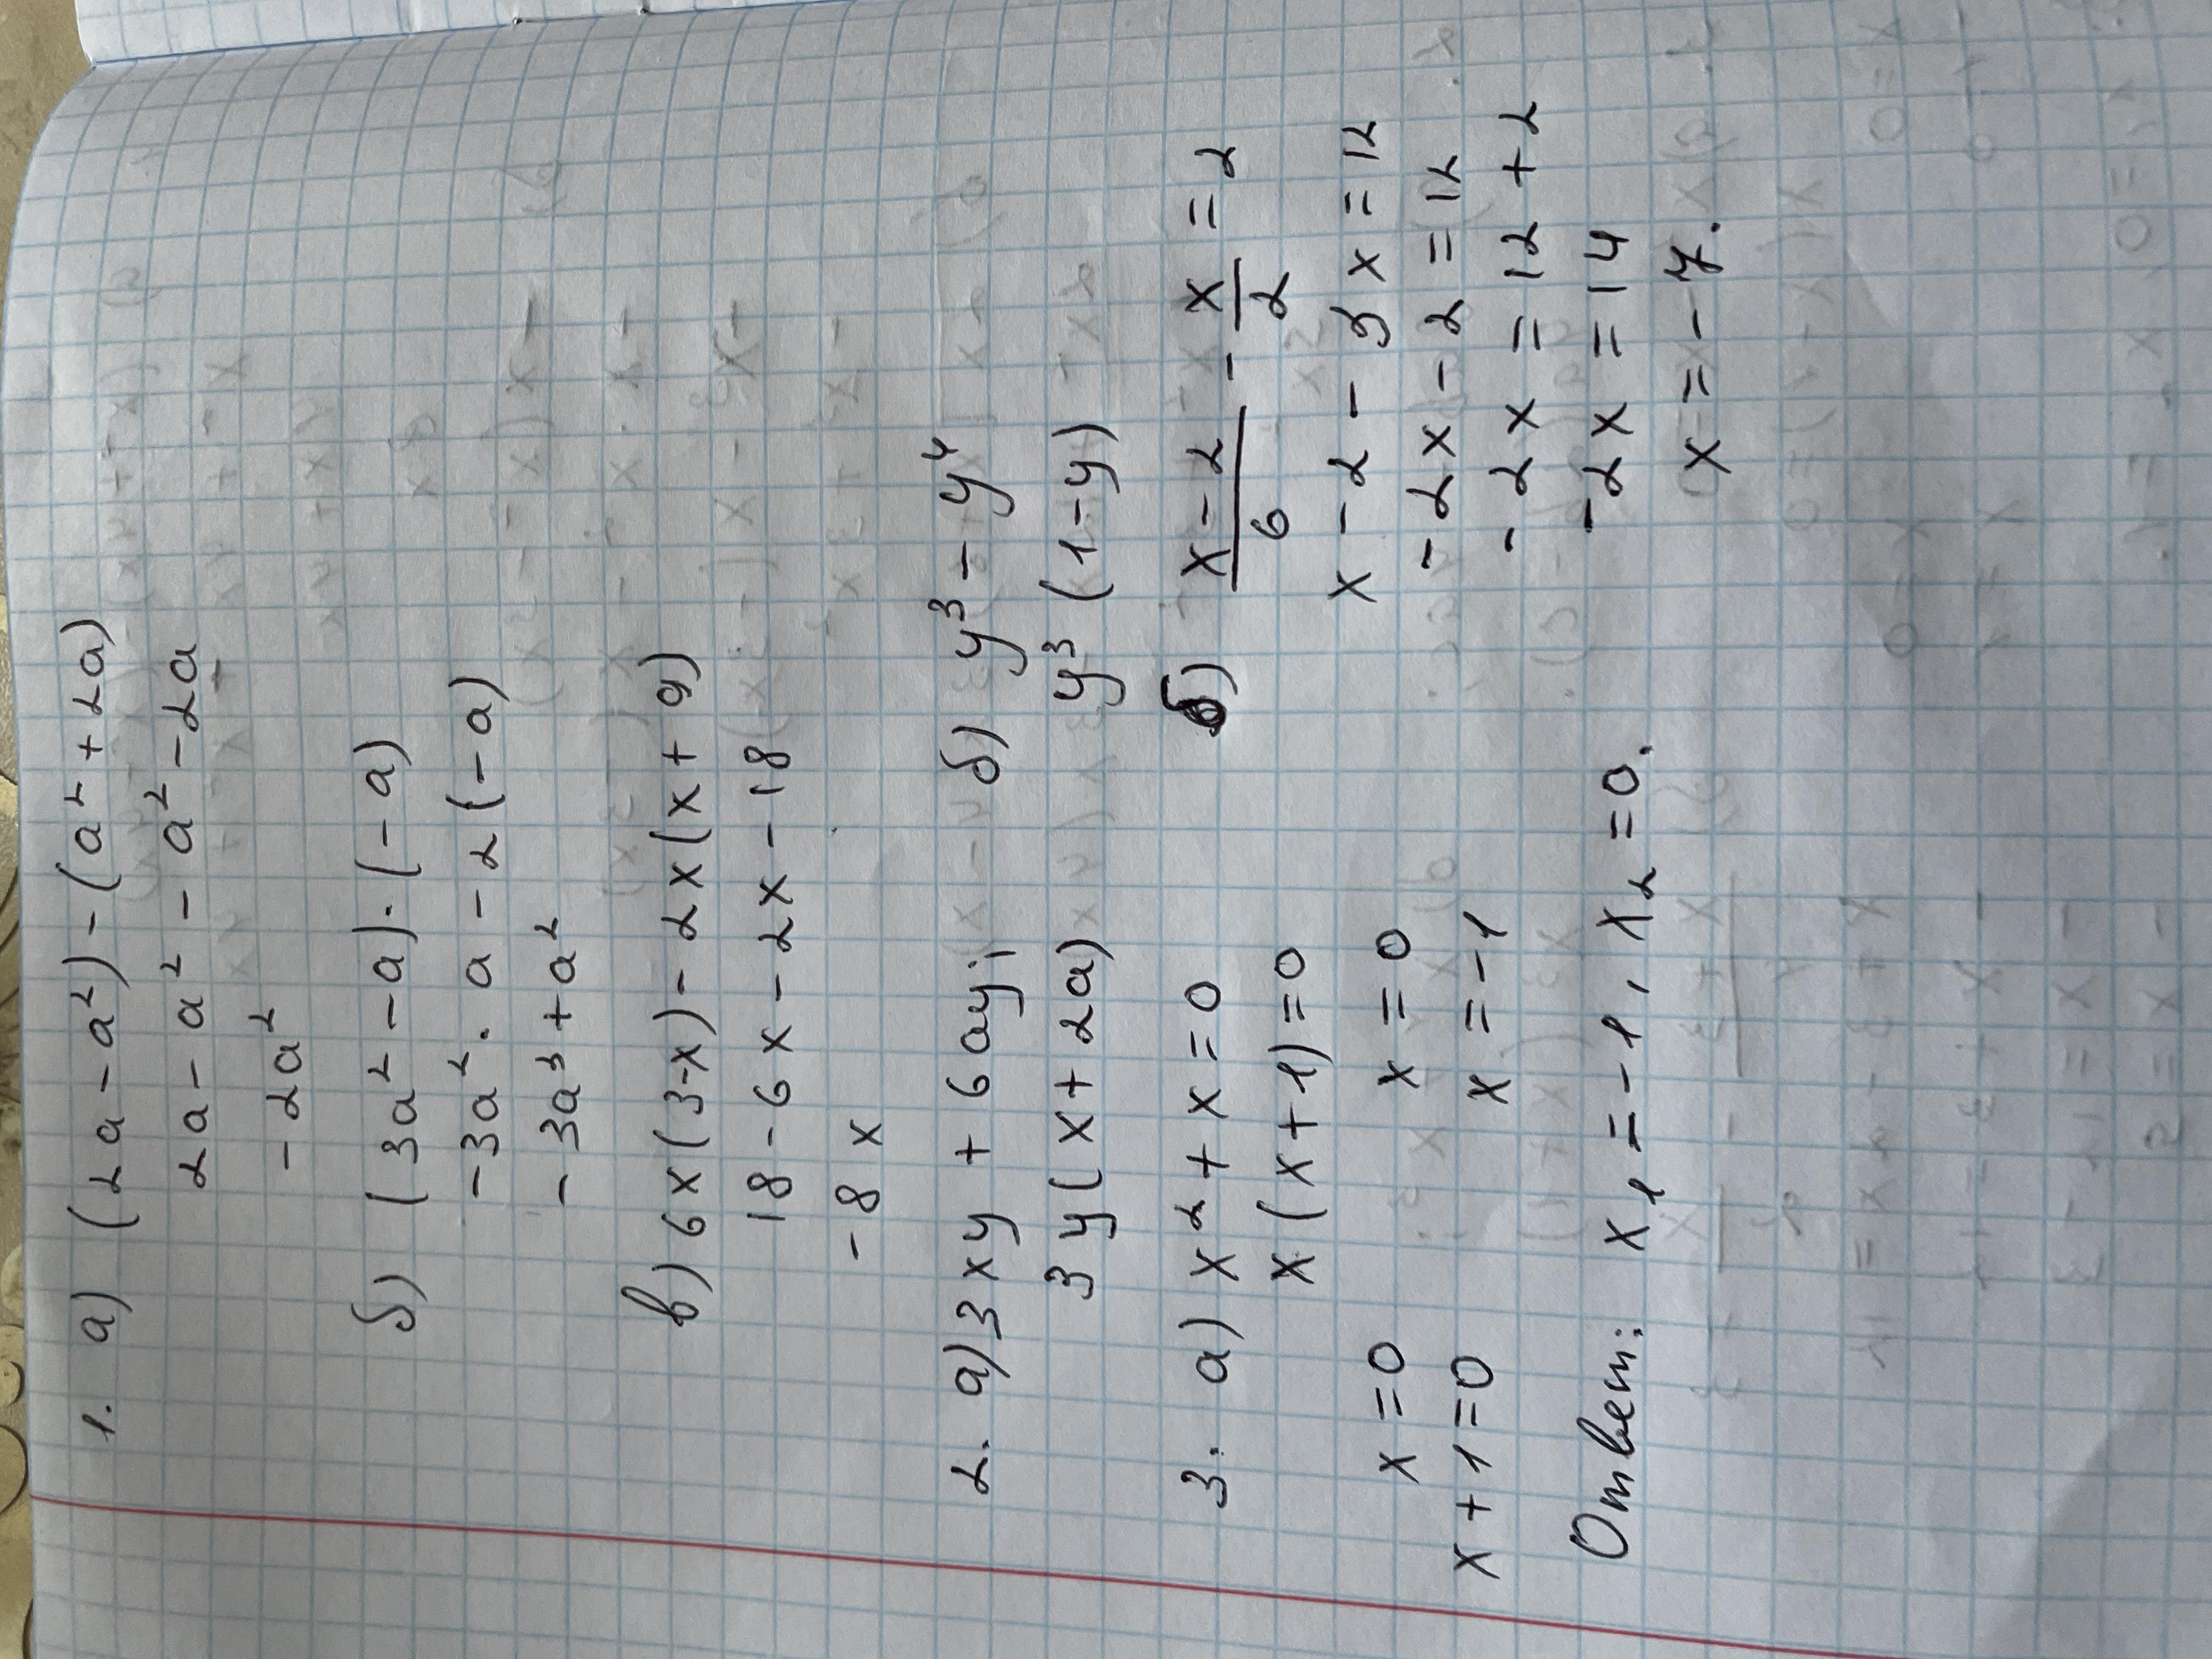 1. а) (2a - a²) - (a² + 2a)
2a - a² - a² - 2a
- 2a²
б) (3a² - a) · (- a)
- 3a² · a - 2 (- a)
- 3a³ + a²
в) 6x (3-x) - 2x (x + 9)
18 - 6x - 2x - 18
- 8x
2. а) 3xy + 6ay;
3y (x + 2a)
б) y³ - y⁴
y³ (1 - y)
3. а) x² + x = 0
x (x + 1) = 0
x = 0 x = 0
x + 1 = 0 x = -1
Ответ: x₁ = -1, x₂ = 0.
б) x - 2 / 6 - x / 2 = 2
x - 2 - 3x = 12
- 2x - 2 = 12
- 2x = 12 + 2
- 2x = 14
x = - 7.